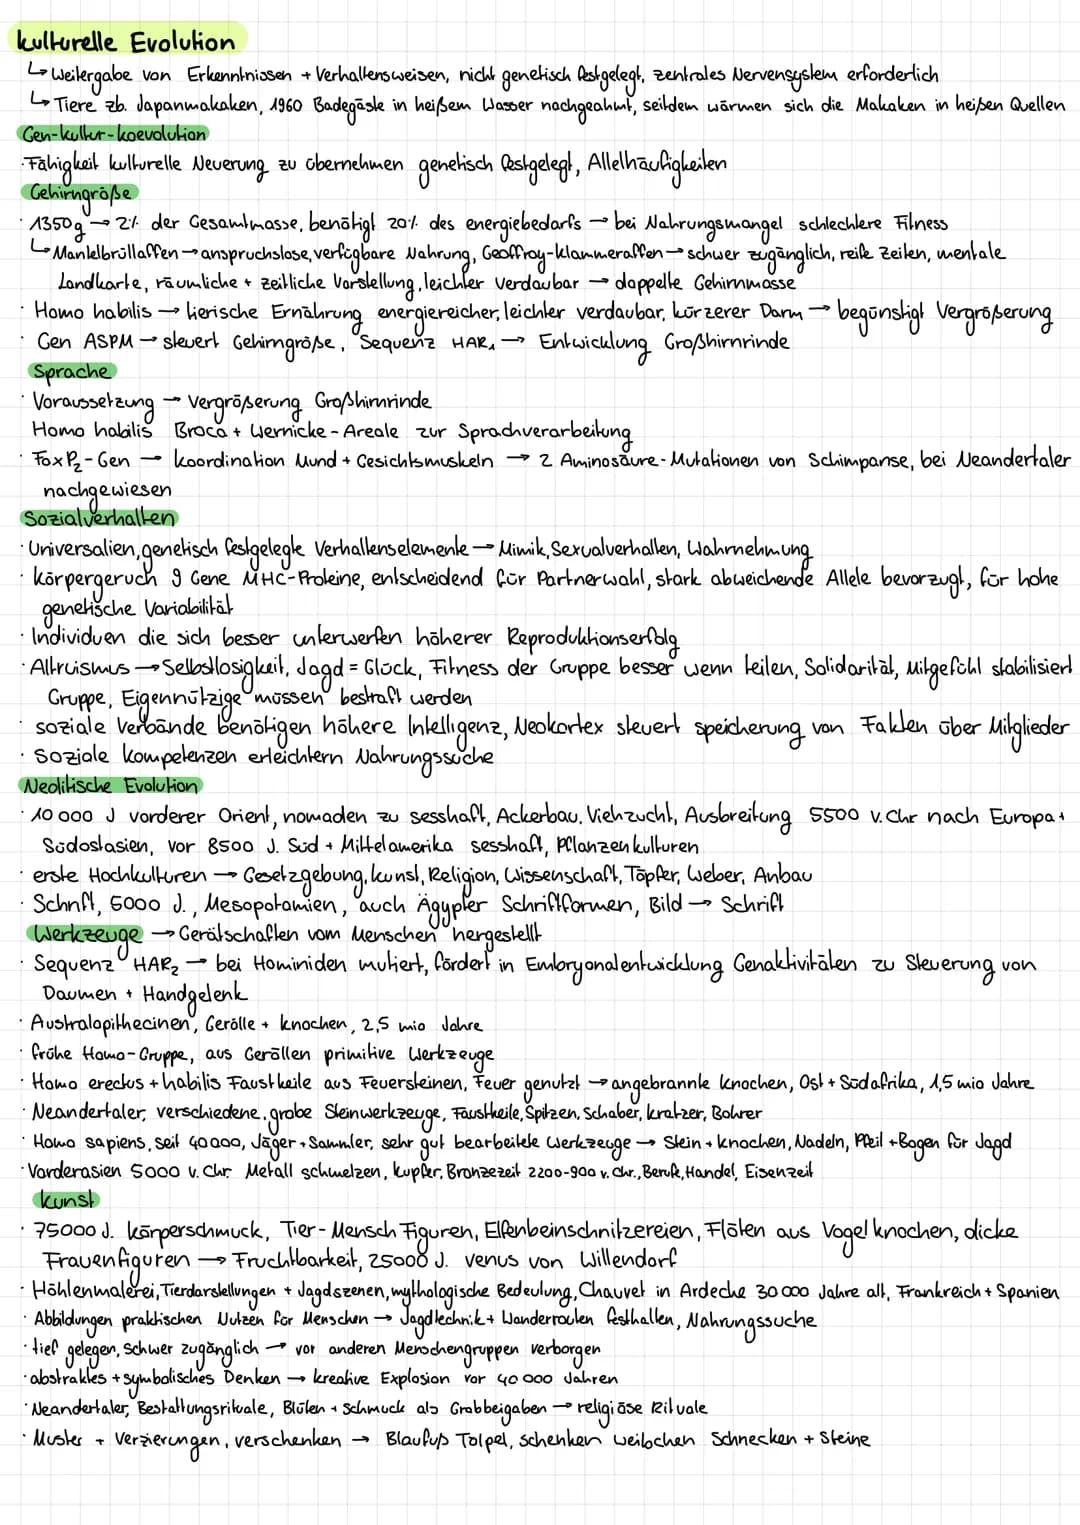 kulturelle Evolution
↳ Weitergabe von Erkenntnissen + Verhaltensweisen, nicht genetisch festgelegt, zentrales Nervensystem erforderlich
↳ Tiere zb. Japanmakaken, 1960 Badegäste in heißem Wasser nachgeahmt, seitdem wärmen sich die Makaken in heißen Quellen
Gen-kultur-koevolution
· Fähigkeit kulturelle Neuerung zu übernehmen genetisch festgelegt, Allelhäufigkeiten
Gehirngröße
· 1350g → 2% der Gesamtmasse, benötigt 20% des energiebedarfs → bei Nahrungsmangel schlechtere Fitness
↳ Mantelbrüllaffen → anspruchslose, verfügbare Nahrung, Geoffroy-klammeraffen → schwer zugänglich, reife Zeiten, mentale
Landkarte, räumliche + zeitliche Vorstellung, leichter verdaubar → doppelte Gehirnmasse
· Homo habilis → tierische Ernährung energiereicher, leichter verdaubar, kürzerer Darm → begünstigt Vergrößerung
· Gen ASPM → steuert Gehirngröße, Sequenz HAR₁ → Entwicklung Großhirnrinde
Sprache
· Voraussetzung → Vergrößerung Großhirnrinde
Homo habilis Broca + Wernicke - Areale zur Sprachverarbeitung
· FoxP₂-Gen → koordination Mund + Gesichtsmuskeln → 2 Aminosäure-Mutationen von Schimpanse, bei Neandertaler
nachgewiesen
Sozialverhalten
· Universalien, genetisch festgelegte Verhaltenselemente → Mimik, Sexualverhalten, Wahrnehmung
· körpergeruch 9 Gene MHC-Proteine, entscheidend für Partnerwahl, stark abweichende Allele bevorzugt, für hohe
genetische Variabilität
· Individuen die sich besser unterwerfen höherer Reproduktionserfolg
· Altruismus → Selbstlosigkeit, Jagd = Glück, Fitness der Gruppe besser wenn teilen, Solidarität, Mitgefühl stabilisiert
Gruppe, Eigennützige müssen bestraft werden
· soziale Verbände benötigen höhere Intelligenz, Neokortex steuert speicherung von Fakten über Mitglieder
· soziale kompetenzen erleichtern Nahrungssuche
Neolitische Evolution
· 10 000 J vorderer Orient, nomaden zu sesshaft, Ackerbau, Viehzucht, Ausbreitung 5500 v.Chr nach Europa +
Südostasien, vor 8500 J. Süd + Mittelamerika sesshaft, Pflanzenkulturen
· erste Hochkulturen → Gesetzgebung, kunst, Religion, Wissenschaft, Töpfer, Weber, Anbau
· Schrift, 5000 J., Mesopotamien, auch Ägypter Schriftformen, Bild → Schrift
Werkzeuge → Gerätschaften vom Menschen hergestellt
· Sequenz HAR₂ → bei Hominiden mutiert, fördert in Embryonalentwicklung Genaktivitäten zu Steuerung von
Daumen + Handgelenk
· Australopithecinen, Gerölle + knochen, 2,5 mio Jahre
· frühe Homo-Gruppe, aus Geröllen primitive Werkzeuge
· Homo erectus + habilis Faustkeile aus Feuersteinen, Feuer genutzt → angebrannte knochen, Ost + Südafrika, 1,5 mio Jahre
· Neandertaler, verschiedene, grobe Steinwerkzeuge, Faustkeile, Spitzen, Schaber, kratzer, Bohrer
· Homo sapiens, seit 40 000, Jäger + Sammler, sehr gut bearbeitete Werkzeuge → Stein + knochen, Nadeln, Pfeil + Bogen für Jagd
· Vorderasien 5000 v. Chr. Metall schmelzen, kupfer, Bronzezeit 2200-900 v. Chr., Berufe, Handel, Eisenzeit
kunst
· 75000 J. körperschmuck, Tier-Mensch Figuren, Elfenbeinschnitzereien, Flöten aus Vogelknochen, dicke
Frauenfiguren → Fruchtbarkeit, 25000 J. venus von Willendorf
· Höhlenmalerei, Tierdarstellungen + Jagdszenen, mythologische Bedeutung, Chauvet in Ardeche 30 000 Jahre alt, Frankreich + Spanien
· Abbildungen praktischen Nutzen für Menschen → Jagdtechnik + Wanderrouten festhalten, Nahrungssuche
· tief gelegen, schwer zugänglich → vor anderen Menschengruppen verborgen
· abstraktes + symbolisches Denken → kreative Explosion vor 40 000 Jahren
· Neandertaler, Bestattungsrituale, Blüten + Schmuck als Grabbeigaben → religiöse Rituale
· Muster + Verzierungen, verschenken → Blaufuß Tölpel, schenken weibchen Schnecken + Steine